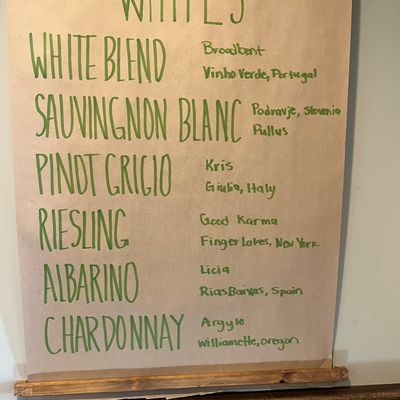 WHITES
WHITE BLEND Broadbent
Vinho Verde, Portugal
SAUVINGNON BLANC Podravje, Slovenia
Pullus
PINOT GRIGIO Kris
Giulia, Italy
RIESLING Good Karma
Finger Lakes, New York
ALBARINO Licia
Rias Baixas, Spain
CHARDONNAY Argyle
Williamette, Oregon